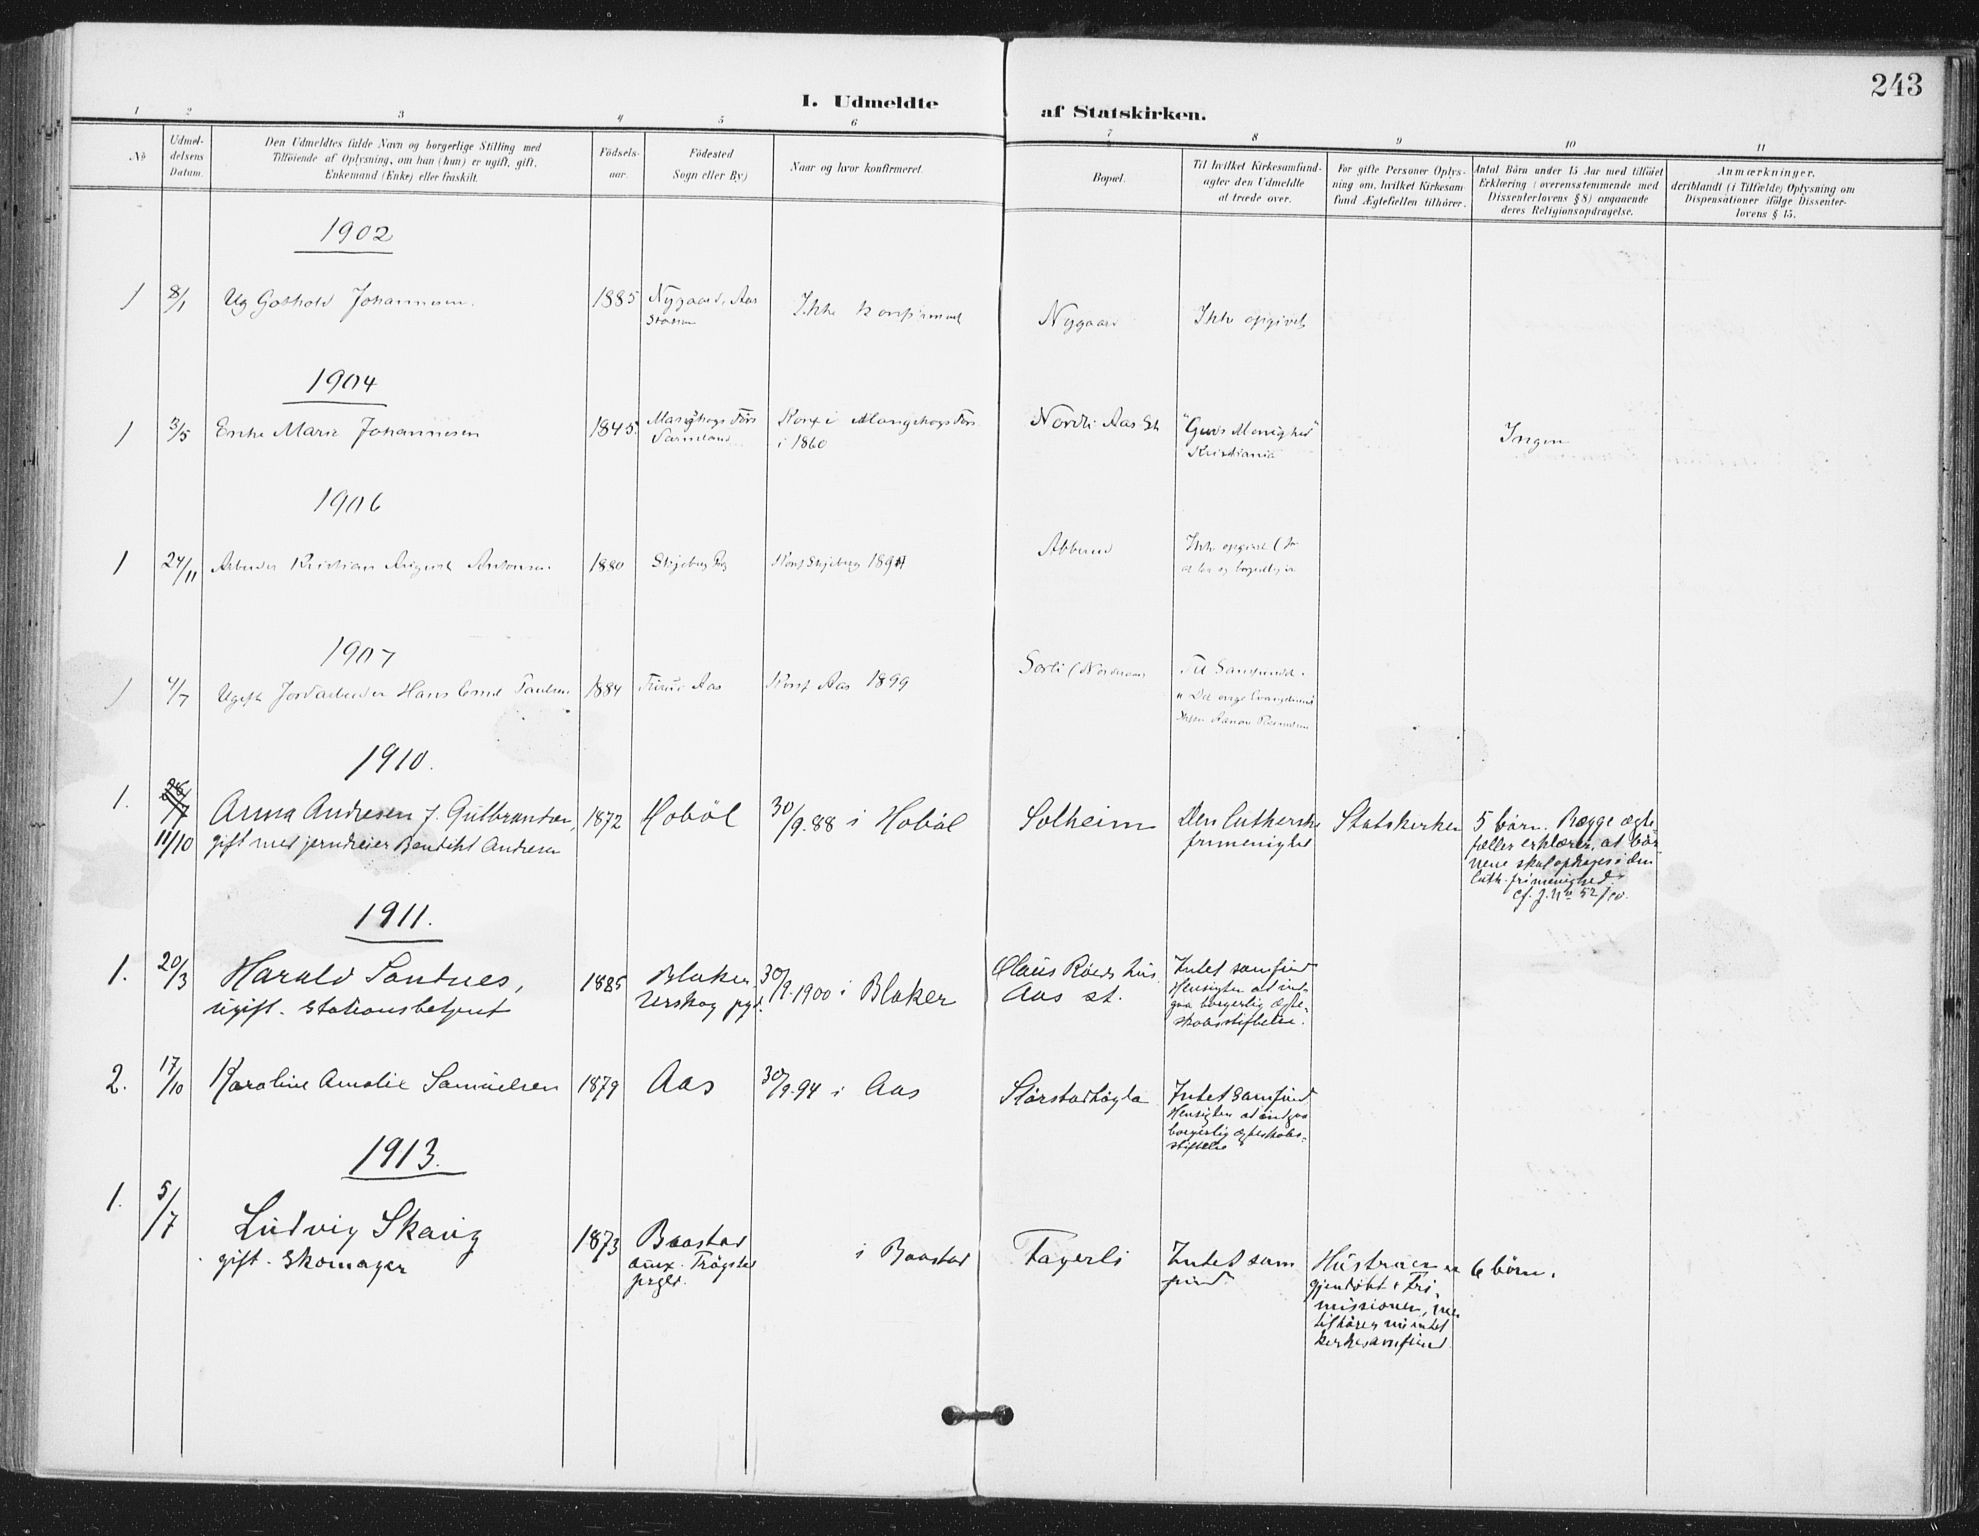 243
I. Udmeldte af Statskirken.
1 2 3 4 5 6 7 8 9 10 11
No
Udmel-
delsens
Datum.
Den Udmeldtes fulde Navn og borgerlige Stilling med
Tilföiende af Oplysning, om han (hun) er ugift, gift,
Enkemand (Enke) eller fraskilt.
Födsels-
aar.
Födested
Sogn eller By)
Naar og hvor konfirmeret.
Bopæl.
Til hvilket Kirkesamfund
agter den Udmeldte
at træde over.
For gifte Personer Oplys-
ning om, hvilket Kirkesam-
fund Ægtefællen tilhörer.
Antal Börn under 15 Aar med tilföiet
Erklæring (overensstemmende med
Dissenterlovens § 8) angaaende
deres Religionsopdragelse.
Anmærkninger,
deriblandt (i Tilfælde) Oplysning om
Dispensationer ifölge Dissenter-
lovens § 15.
1902
1 8/1 Ug Gothold Johannesen. 1885 Nygaard, Aas
Station
Ikke konfirmeret
Nygaard
Ikke opgivet
1904
1 3/5 Enke Marie Johannesen 1845
Konf i
i 1860
Nordli Aas St
"Guds Menighed"
Kristiania
Ingen
1906
1 24/11 Arbeider Kristian August Antonsen 1880 Skjeberg Pg
Konf Skjeberg
Ikke opgivet
1907
1 4/7 Ugift Jordarbeider Hans Paulsen 1884 Aas
Konf Aas 1899
Til Samfundet
1910.
1. 11/10 Anna Andresen f. Gulbrandsen,
gift med jerndreier Bendikt Andresen
1872 Hobøl 30/9.88 i Hobøl
Solheim
Den lutherske
frimenighet
Statskirken
5 børn. Begge ægte-
fæller erklærer, at bør-
nene skal opdrages i den
luth. frimenighed.
Cf. J. No 52/10.
1911.
1. 20/3 Harald Sandnes,
ugift. Stationsbetjent
1885 Blaker,
Urskog pgd.
30/9.1900 i Blaker
Claus Røeds hus
Aas st.
Intet samfund
Hensigten at ind-
gaa borgerlig ægte-
skabsstiftelse.
2. 17/10 Karoline Amalie Samuelsen 1879 Aas 30/9.94 i Aas
Intet samfund
Hensigten at indgaa
borgerlig ægteskabs-
stiftelse
1913.
1. 5/7 Ludvig Skaug
gift. Skomager
1873 Baastad
anx. Trøgstad
prgld.
i Baastad
Fagerli
Intet sam
fund.
Hustruen er
gjendøbt i Fri-
missionen, men
tilhører nu intet
kirkesamfund.
6 børn.